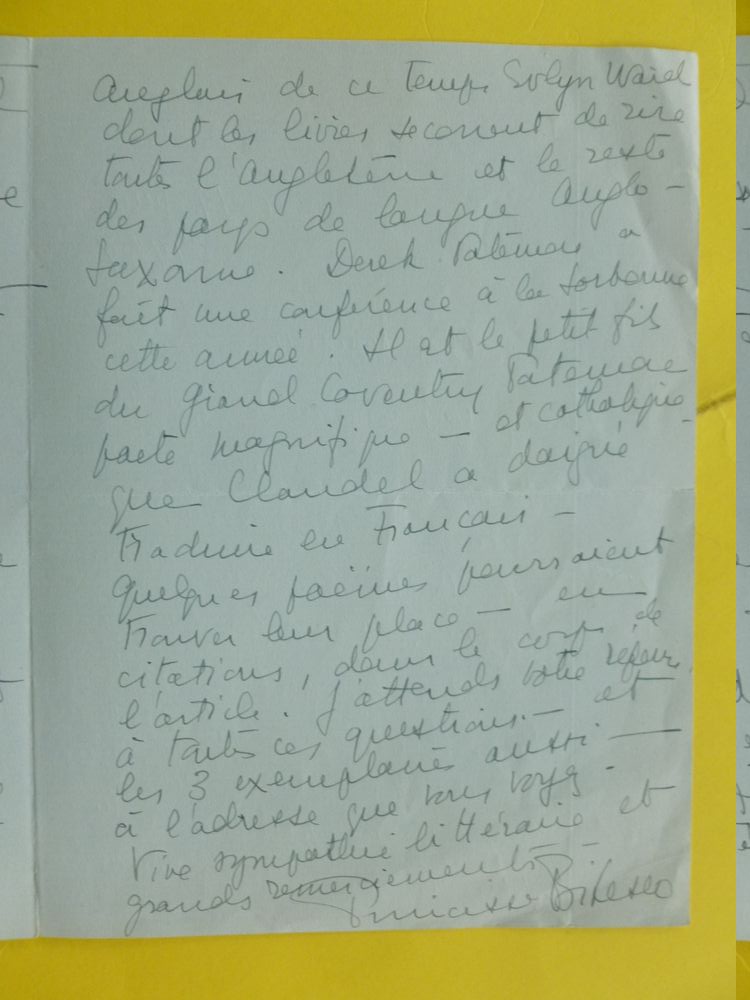 Anglais de ce temps Evlyn Waid
dont les livres secouent de rire
toute l'Angleterre et le reste
des pays de langue Anglo-
saxonne. Derek Patmore a
fait une conférence à la Sorbonne
cette année. Il est le petit fils
du grand Coventry Patmore
poète magnifique — et catholique
que Claudel a daigné
traduire en Français —
quelques poèmes pourraient
trouver leur place — en
citations, dans le corps de
l'article. J'attends votre réponse
à toutes ces questions — et
les 3 exemplaires aussi —
à l'adresse que vous voyez.
Vive sympathie littéraire et
grands remerciements —
Princesse Bibesco